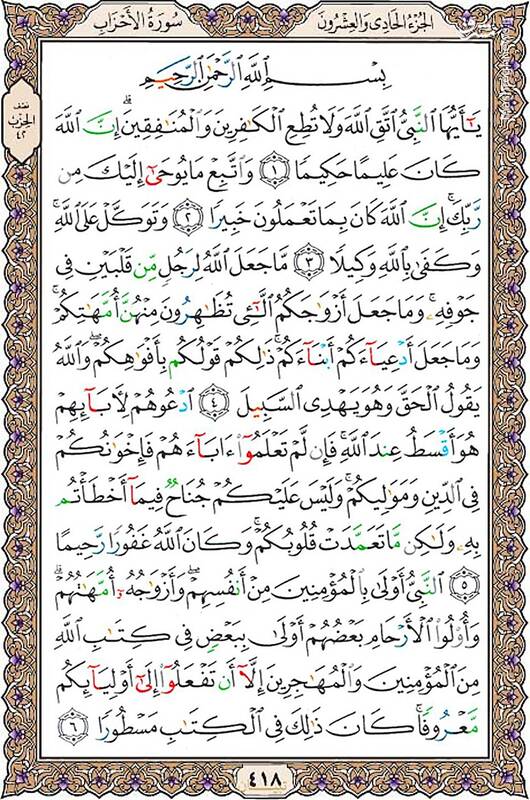 الجزء الحادى والعشرون
سورة الأحزاب
نصف
الحزب
٤٢
بِسْمِ ٱللَّهِ ٱلرَّحْمَٰنِ ٱلرَّحِيمِ
يَـٰٓأَيُّهَا ٱلنَّبِىُّ ٱتَّقِ ٱللَّهَ وَلَا تُطِعِ ٱلْكَـٰفِرِينَ وَٱلْمُنَـٰفِقِينَ ۗ إِنَّ ٱللَّهَ
كَانَ عَلِيمًا حَكِيمًا ١ وَٱتَّبِعْ مَا يُوحَىٰٓ إِلَيْكَ مِن
رَّبِّكَ ۚ إِنَّ ٱللَّهَ كَانَ بِمَا تَعْمَلُونَ خَبِيرًا ٢ وَتَوَكَّلْ عَلَى ٱللَّهِ ۚ
وَكَفَىٰ بِٱللَّهِ وَكِيلًا ٣ مَّا جَعَلَ ٱللَّهُ لِرَجُلٍ مِّن قَلْبَيْنِ فِى
جَوْفِهِۦ ۚ وَمَا جَعَلَ أَزْوَٰجَكُمُ ٱلَّـٰٓـِٔى تُظَـٰهِرُونَ مِنْهُنَّ أُمَّهَـٰتِكُمْ ۚ
وَمَا جَعَلَ أَدْعِيَآءَكُمْ أَبْنَآءَكُمْ ۚ ذَٰلِكُمْ قَوْلُكُم بِأَفْوَٰهِكُمْ ۖ وَٱللَّهُ
يَقُولُ ٱلْحَقَّ وَهُوَ يَهْدِى ٱلسَّبِيلَ ٤ ٱدْعُوهُمْ لِـَٔابَآئِهِمْ
هُوَ أَقْسَطُ عِندَ ٱللَّهِ ۚ فَإِن لَّمْ تَعْلَمُوٓا۟ ءَابَآءَهُمْ فَإِخْوَٰنُكُمْ
فِى ٱلدِّينِ وَمَوَٰلِيكُمْ ۚ وَلَيْسَ عَلَيْكُمْ جُنَاحٌ فِيمَآ أَخْطَأْتُم
بِهِۦ وَلَـٰكِن مَّا تَعَمَّدَتْ قُلُوبُكُمْ ۚ وَكَانَ ٱللَّهُ غَفُورًا رَّحِيمًا
٥ ٱلنَّبِىُّ أَوْلَىٰ بِٱلْمُؤْمِنِينَ مِنْ أَنفُسِهِمْ ۖ وَأَزْوَٰجُهُۥٓ أُمَّهَـٰتُهُمْ ۗ
وَأُو۟لُوا۟ ٱلْأَرْحَامِ بَعْضُهُمْ أَوْلَىٰ بِبَعْضٍ فِى كِتَـٰبِ ٱللَّهِ
مِنَ ٱلْمُؤْمِنِينَ وَٱلْمُهَـٰجِرِينَ إِلَّآ أَن تَفْعَلُوٓا۟ إِلَىٰٓ أَوْلِيَآئِكُم
مَّعْرُوفًا ۚ كَانَ ذَٰلِكَ فِى ٱلْكِتَـٰبِ مَسْطُورًا ٦
٤١٨